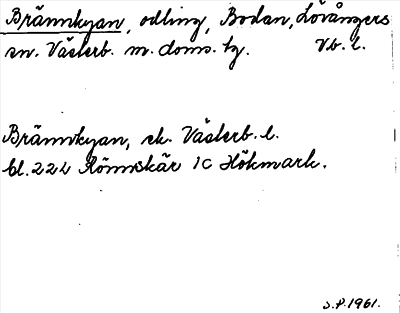 Brännkyan, odling, Bodan, Lövångers
sn. Västerb. m. doms. tg. Vb. l.
Brännkyan, ek. Västerb. l.
bl. 22 L Rönnskär 1C Hökmark.
S.P. 1961.